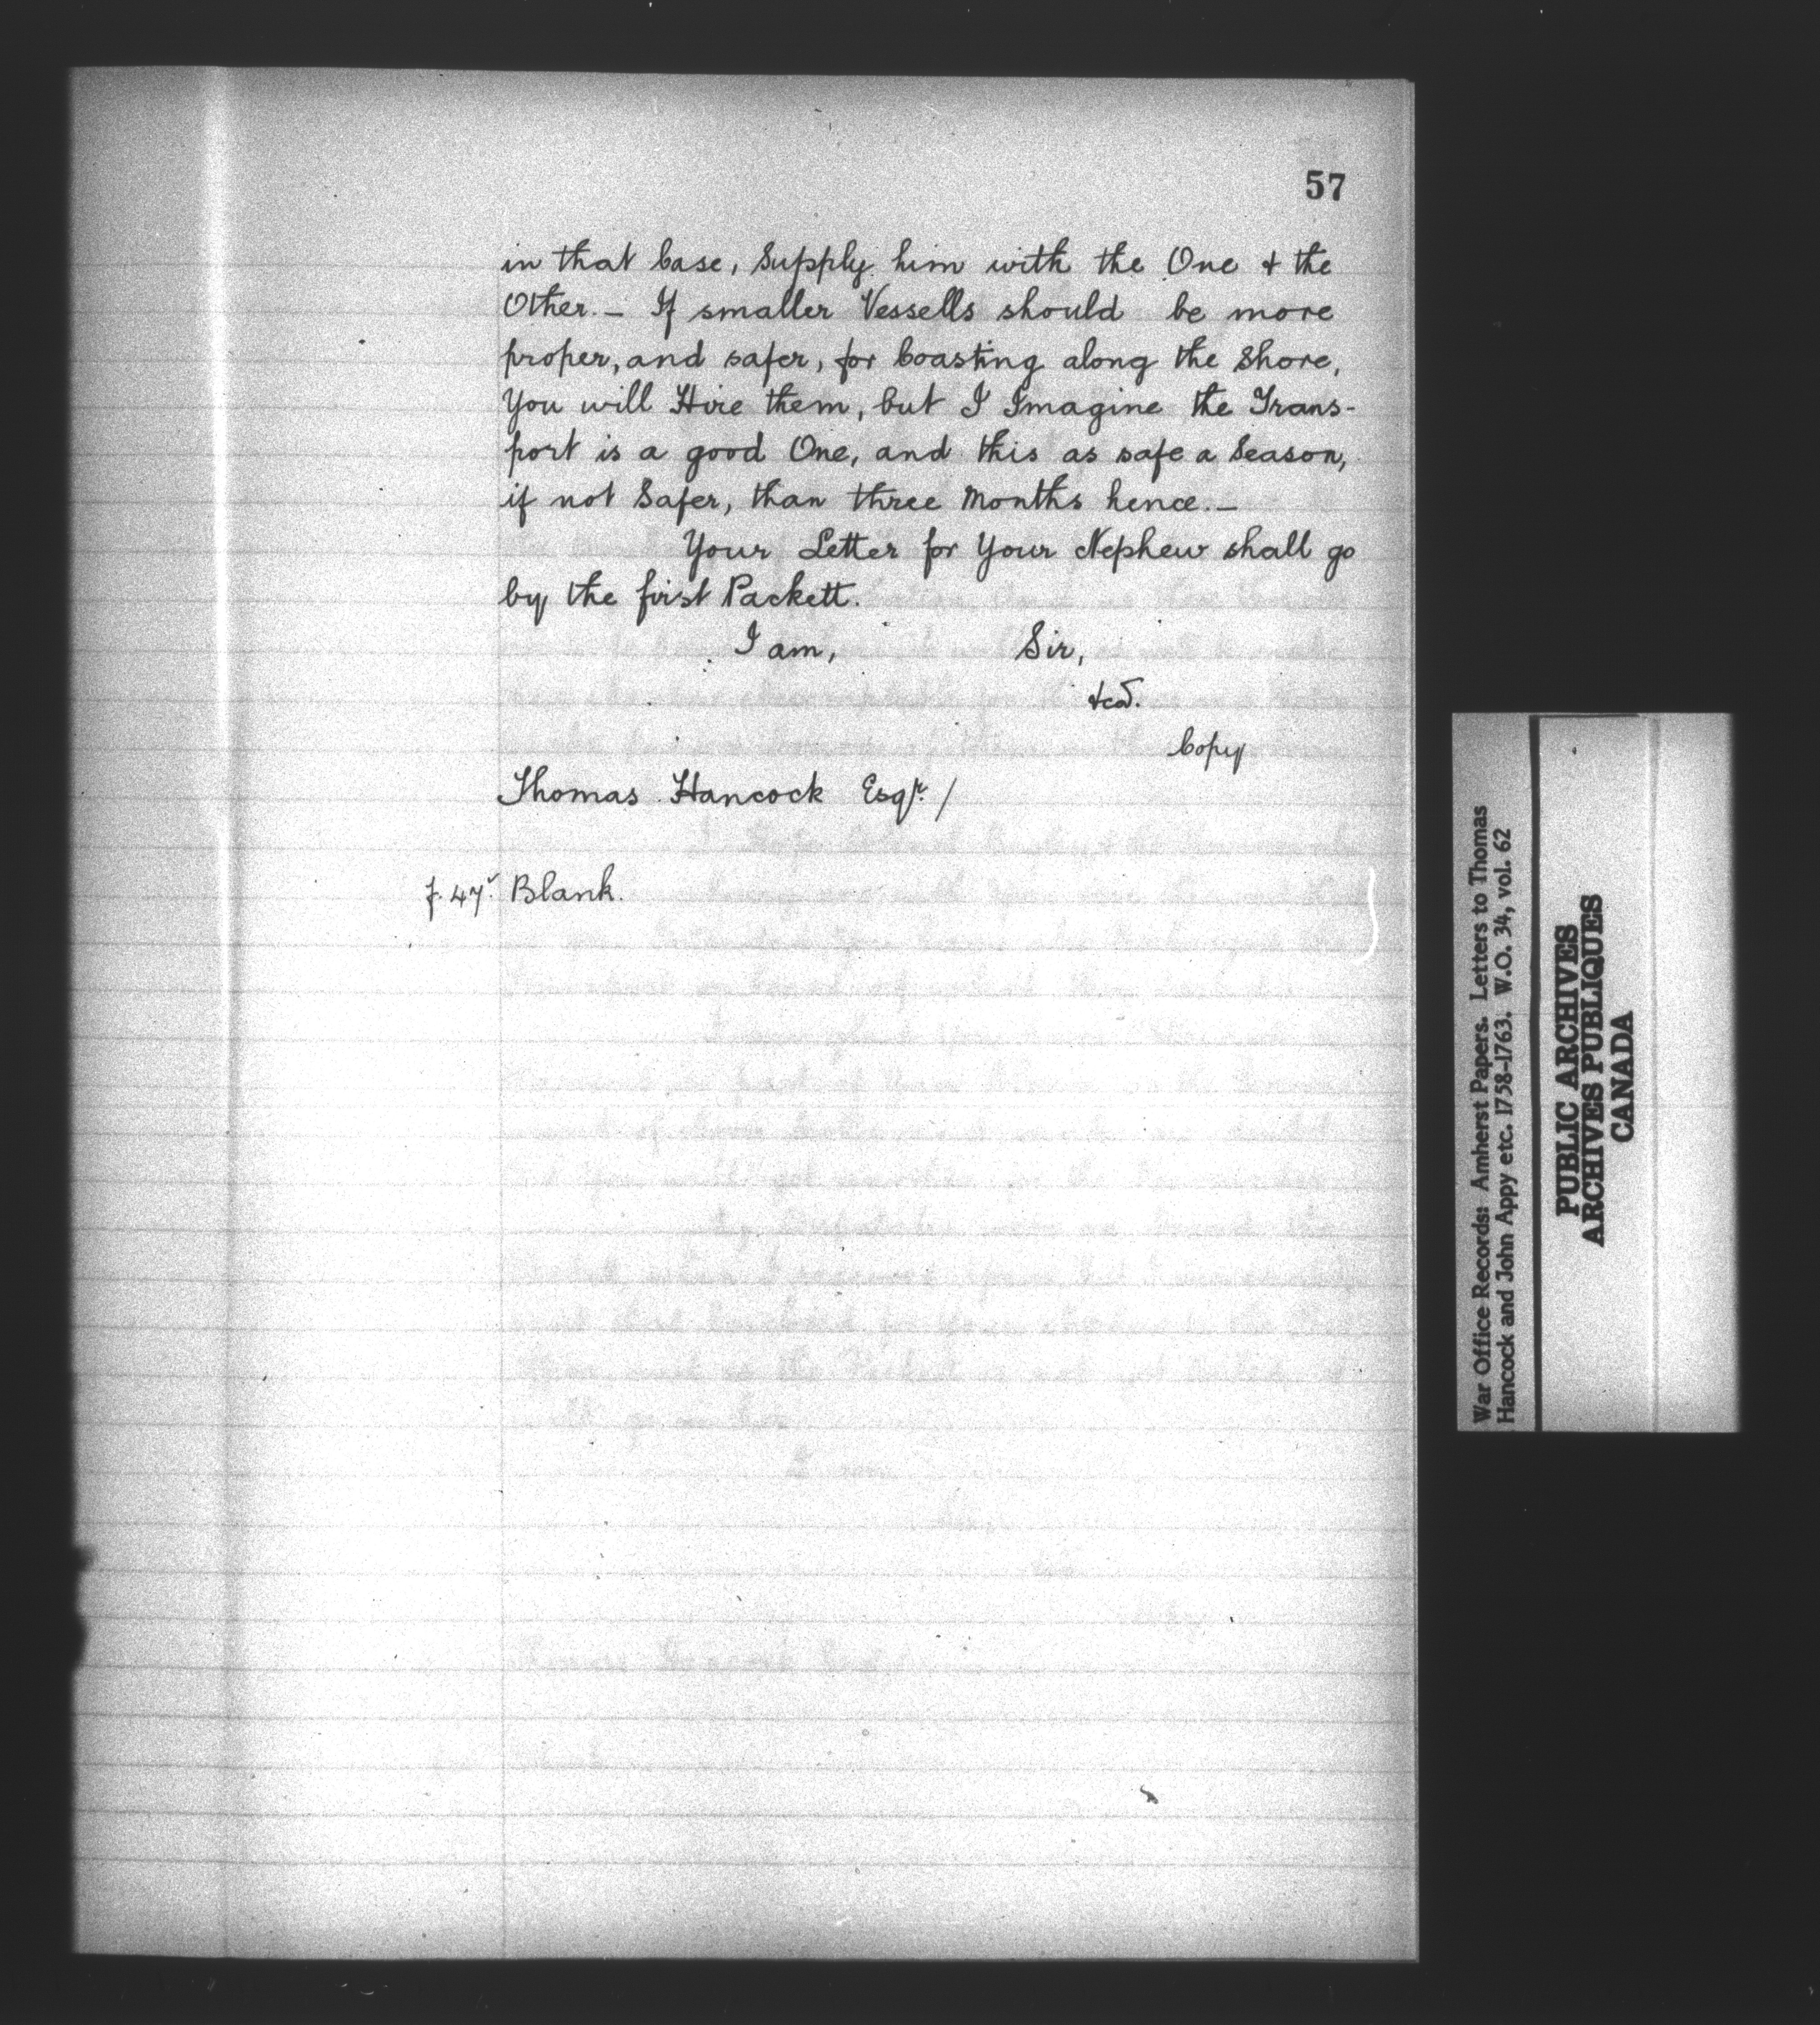 57
in that Case, Supply him with the One & the
Other. — If smaller Vessells should be more
proper, and safer, for Coasting along the Shore,
You will Hire them, but I Imagine the Trans-
port is a good One, and this as safe a Season,
if not Safer, than three Months hence. —
Your Letter for Your Nephew shall go
by the first Packett.
I am, Sir,
&ca.
Copy
Thomas Hancock Esqr. /
f. 47v. Blank.
War Office Records: Amherst Papers. Letters to Thomas
Hancock and John Appy etc. 1758-1763. W.O. 34, vol. 62
PUBLIC ARCHIVES
ARCHIVES PUBLIQUES
CANADA